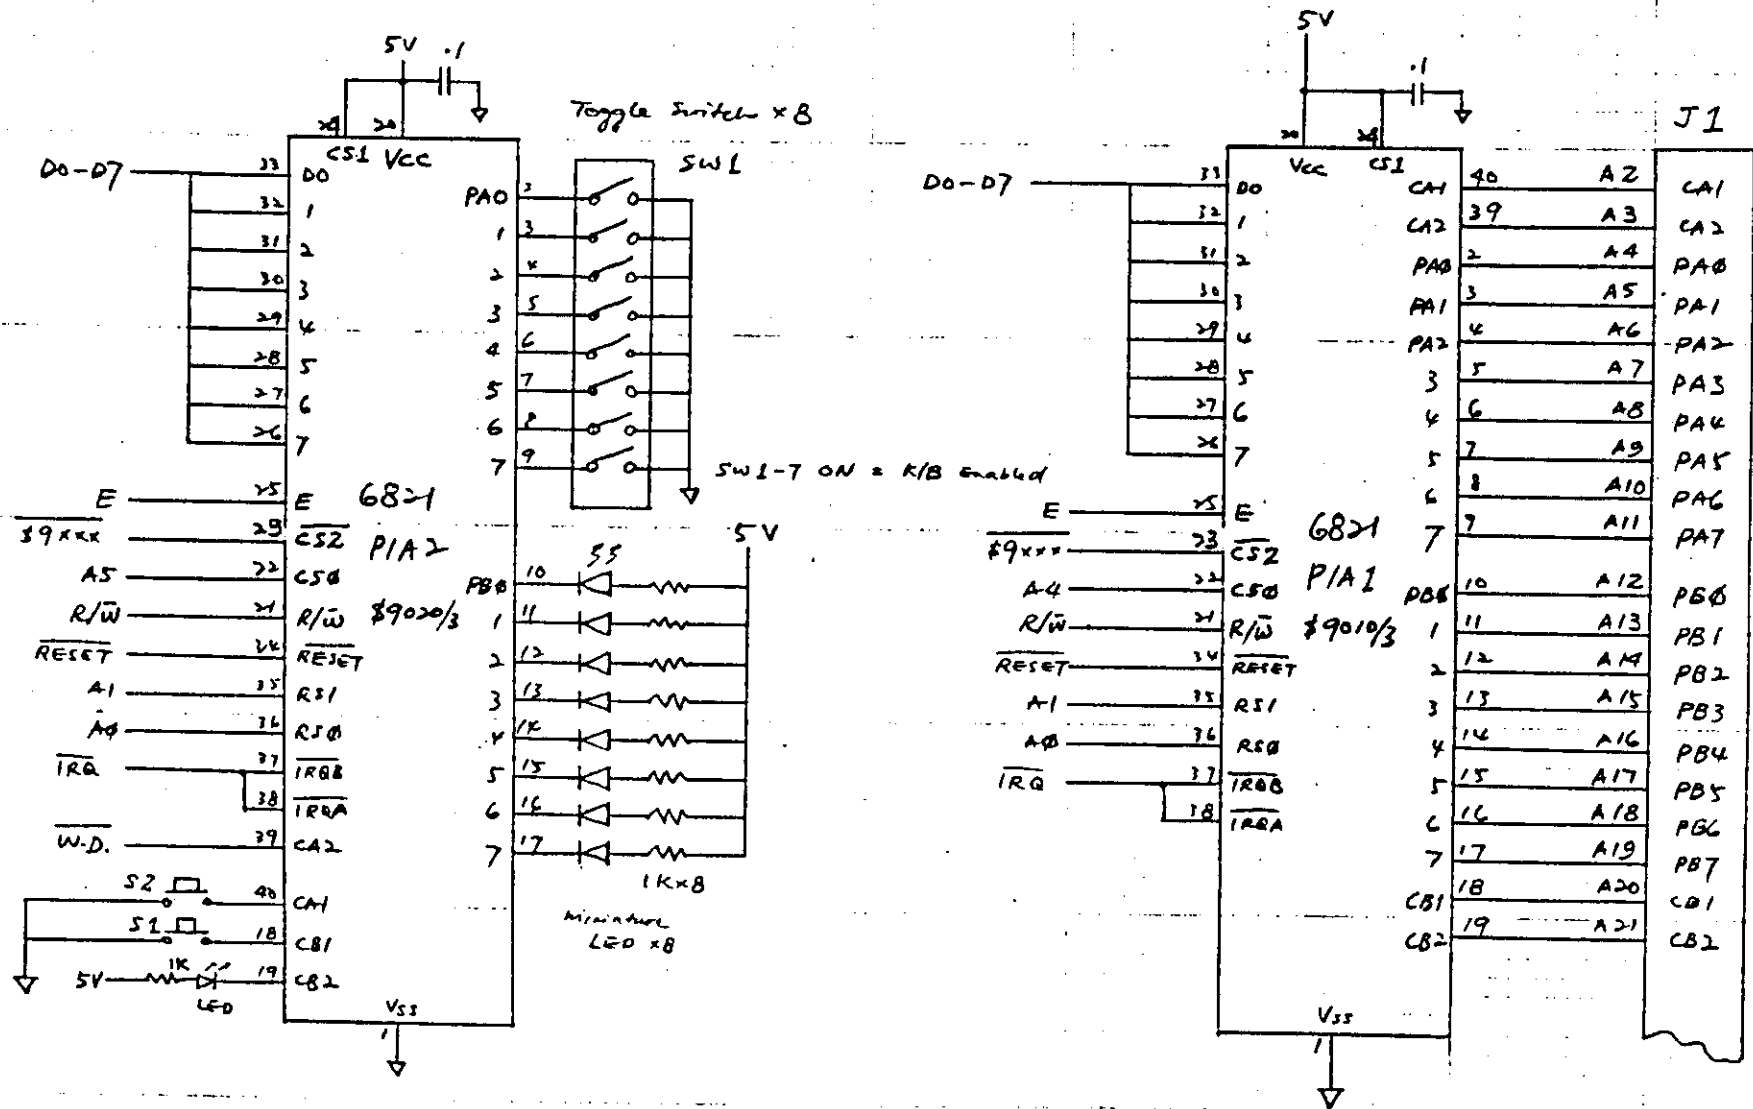 5V
.1
Toggle Switch x 8
24 20
CS1 Vcc
SW1
D0-D7
33 D0
32 1
31 2
30 3
29 4
28 5
27 6
26 7
PA0 2
1 3
2 4
3 5
4 6
5 7
6 8
7 9
SW1-7 ON = K/B Enabled
E 25 E
6821
PIA2
$9020/3
$9xxx 23 CS2
A5 22 CSØ
R/W 21 R/W
RESET 34 RESET
A1 35 RS1
AØ 36 RSØ
IRQ 37 IRQB
38 IRQA
W.D. 39 CA2
S2 40 CA1
S1 18 CB1
5V 1K LED 19 CB2
5V
PBØ 10
1 11
2 12
3 13
4 14
5 15
6 16
7 17
1K x 8
miniature
LED x8
Vss
1
5V
.1
20 24
Vcc CS1
J1
D0-D7
33 D0
32 1
31 2
30 3
29 4
28 5
27 6
26 7
E 25 E
6821
PIA1
$9010/3
$9xxx 23 CS2
A4 22 CSØ
R/W 21 R/W
RESET 34 RESET
A1 35 RS1
AØ 36 RSØ
IRQ 37 IRQB
38 IRQA
CA1 40 A2 CA1
CA2 39 A3 CA2
PAØ 2 A4 PAØ
PA1 3 A5 PA1
PA2 4 A6 PA2
3 5 A7 PA3
4 6 A8 PA4
5 7 A9 PA5
6 8 A10 PA6
7 A11 PA7
PBØ 10 A12 PBØ
1 11 A13 PB1
2 12 A14 PB2
3 13 A15 PB3
4 14 A16 PB4
5 15 A17 PB5
6 16 A18 PB6
7 17 A19 PB7
CB1 18 A20 CB1
CB2 19 A21 CB2
Vss
1